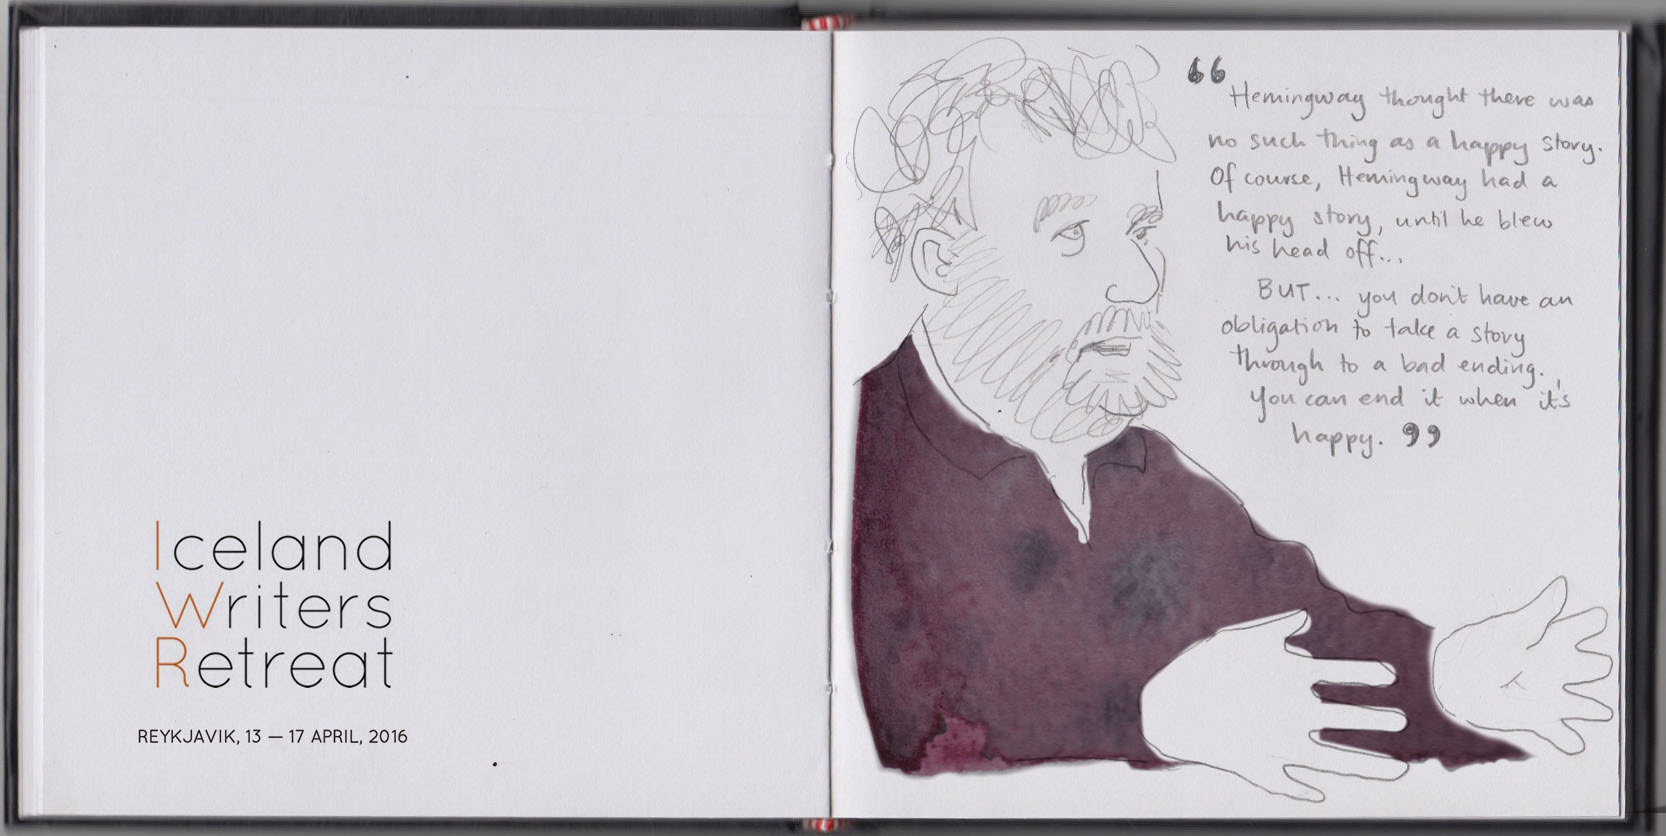 Iceland
Writers
Retreat
REYKJAVIK, 13 — 17 APRIL, 2016
“Hemingway thought there was
no such thing as a happy story.
Of course, Hemingway had a
happy story, until he blew
his head off...
BUT... you don't have an
obligation to take a story
through to a bad ending.
You can end it when it's
happy.”